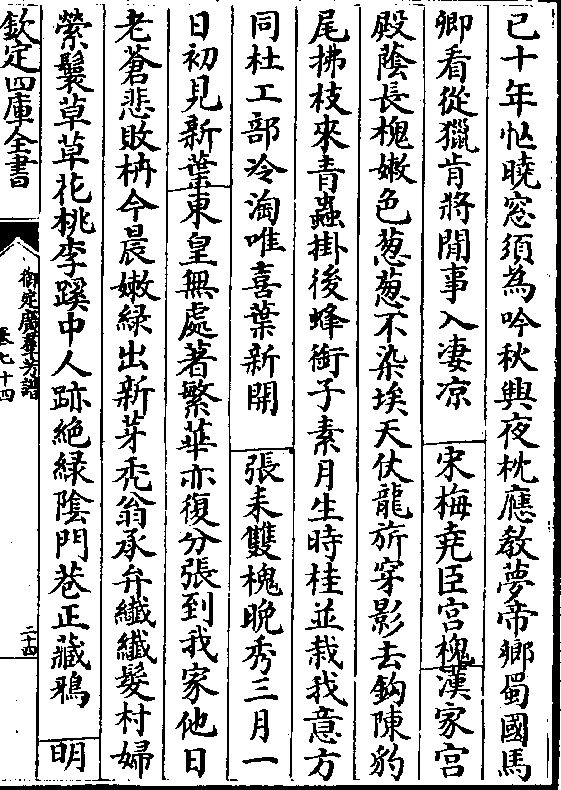 已十年忙曉窓須為吟秋興夜枕應教夢帝鄉蜀國馬
卿看從獵肯將閒事入凄凉　宋梅堯臣宮槐漢家宮
殿蔭長槐嫩色葱葱不染埃天仗龍旂穿影去鈎陳豹
尾拂枝來青蟲掛後蜂銜子素月生時桂並栽我意方
同杜工部冷淘唯喜葉新開　張耒雙槐晚秀三月一
日初見新葉東皇無處著繁華亦復分張到我家他日
老蒼悲敗枿今晨嫩綠出新芽禿翁承弁纎纎髮村婦
縈鬟草草花桃李蹊中人跡絶綠陰門巷正藏鴉　明
欽定四庫全書
御定廣羣芳譜
卷七十四
二十四